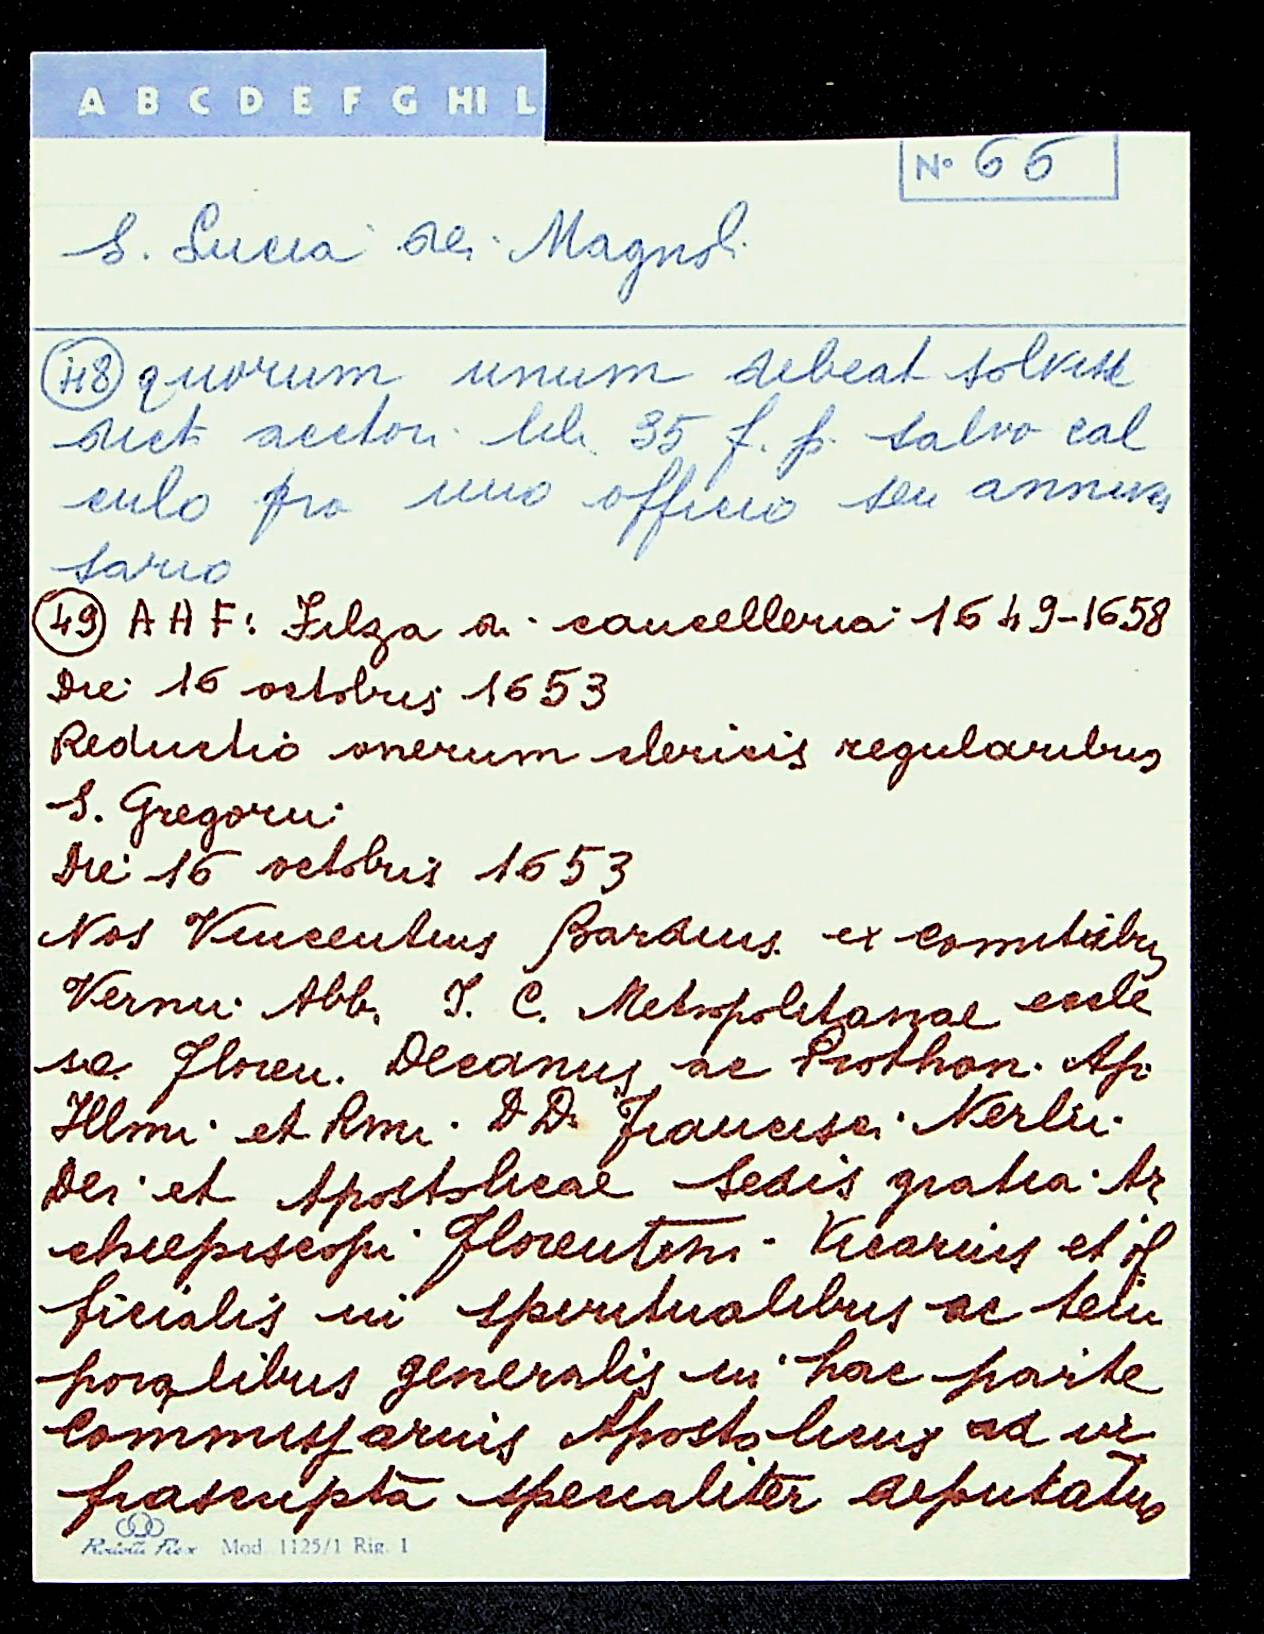 A B C D E F G HI L
No 66
S. Lucia de' Magnoli
48 quorum unum debeat solvere
dict actori lib. 35 f. p. salvo cal
culo pro uno officio seu anniver
sario
49 A A F: Filza di cancelleria 1649-1658
Die 16 octobris 1653
Reductio onerum clericis regularibus
S. Gregorii
Die 16 octobris 1653
Nos Vincentius Bardius ex comitibus
Vernii Abb. I. C. Metropolitanae eccle
siae Floren. Decanus ac Prothon. Ap.
Illmi et Rmi. D D. Francisci Nerlii
Dei et Apostolicae Sedis gratia Ar
chiepiscopi Florentini Vicarius et of
ficialis in spiritualibus ac tem
poralibus generalis in hac parte
Commissarius Apostolicus ad in
frascripta specialiter deputatus
Mod. 1125/1 Rig. 1